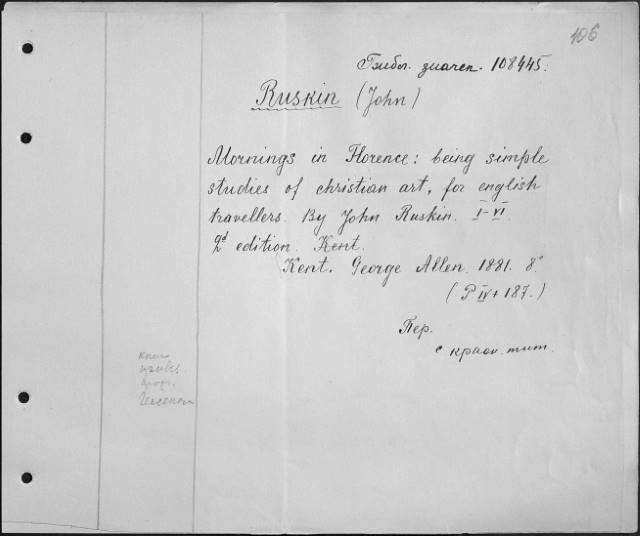 106
108445:
Ruskin (John)
Mornings in Florence: being simple
studies of christian art, for english
travellers. By John Ruskin. I–VI.
2d edition. Kent.
Kent. George Allen. 1881. 8°
(P IV + 187.)
Пер.
с красн. тит.